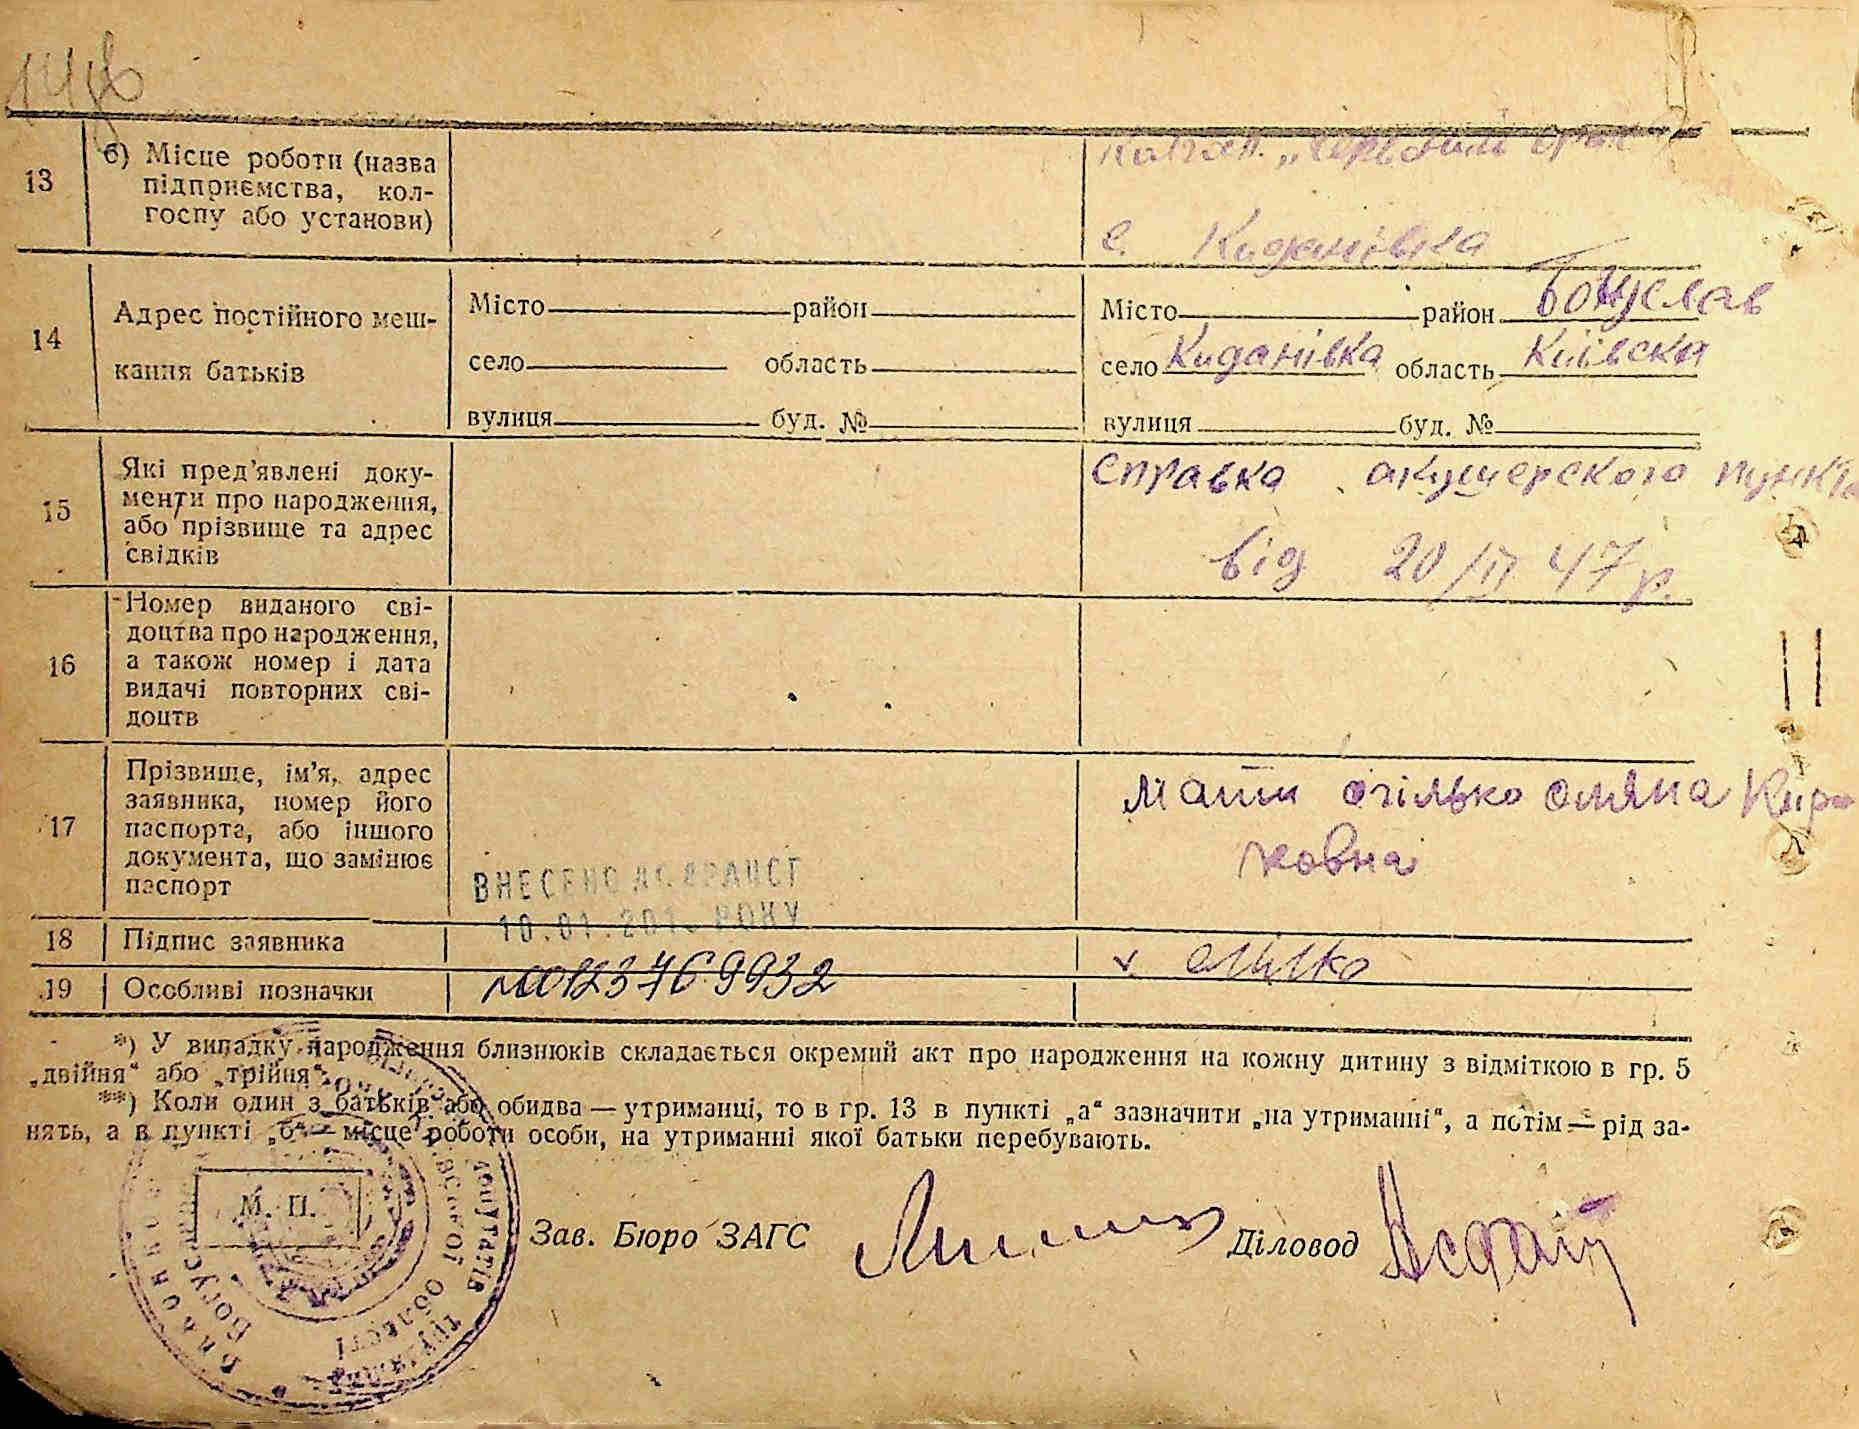 13
б) Місце роботи (назва
підприємства, кол-
госпу або установи)
с. Киданівка
14
Адрес постійного меш-
кання батьків
Місто район
село область
вулиця буд. №
Місто район Богуслав
село Киданівка область Київска
вулиця буд. №
15
Які пред'явлені доку-
менти про народження,
або прізвище та адрес
свідків
справка акушерского пункта
від 20/II 47 р.
16
Номер виданого сві-
доцтва про народження,
а також номер і дата
видачі повторних сві-
доцтв
17
Прізвище, ім'я, адрес
заявника, номер його
паспорта, або іншого
документа, що замінює
паспорт
мати
ковна
ВНЕСЕНО ДО ДРАЦСГ
РОКУ
18
Підпис заявника
19
Особливі позначки
*) У випадку народження близнюків складається окремий акт про народження на кожну дитину з відміткою в гр. 5
„двійня“ або „трійня“.
**) Коли один з батьків або обидва — утриманці, то в гр. 13 в пункті „а“ зазначити „на утриманні“, а потім — рід за-
нять, а в пункті „б“ — місце роботи особи, на утриманні якої батьки перебувають.
М. П.
Зав. Бюро ЗАГС
Діловод